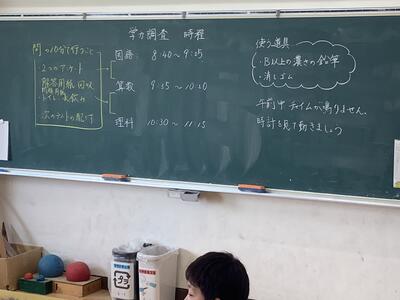 学力調査 時程
間の10分で行うこと
2つのアンケート
解答用紙回収
問題用紙
・トイレ・水飲み
次のテストの配付
国語 8:40〜9:25
算数 9:35〜10:20
理科 10:30〜11:15
使う道具
・B以上の濃さの鉛筆
・消しゴム
午前中チャイムが鳴りません。
時計を見て動きましょう